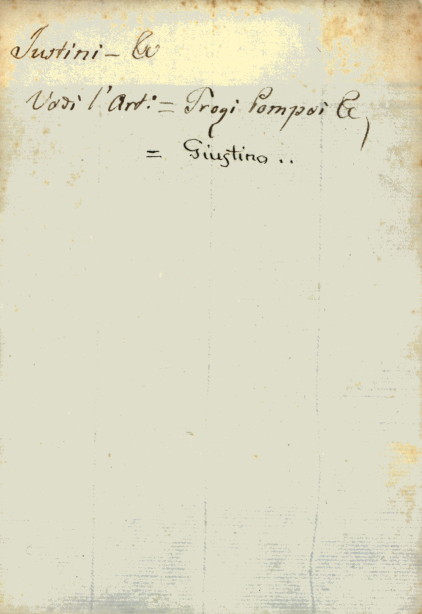 Iustini - &
Vedi l'Art: = Trogi Pompei &,
= Giustino..